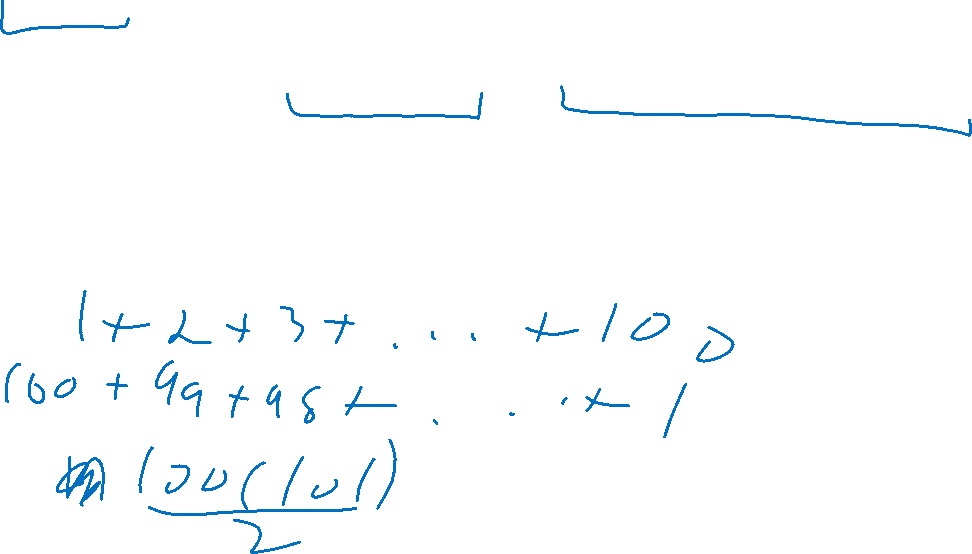 1+2+3+...+100
100+99+98+...+1
100(101)
2